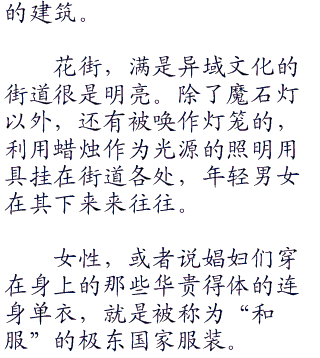 的建筑。
花街，满是异域文化的
街道很是明亮。除了魔石灯
以外，还有被唤作灯笼的，
利用蜡烛作为光源的照明用
具挂在街道各处，年轻男女
在其下来来往往。
女性，或者说娼妇们穿
在身上的那些华贵得体的连
身单衣，就是被称为“和
服”的极东国家服装。